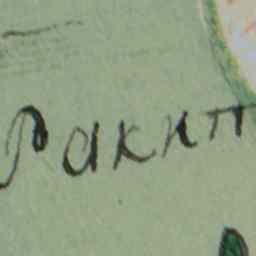 Ракип